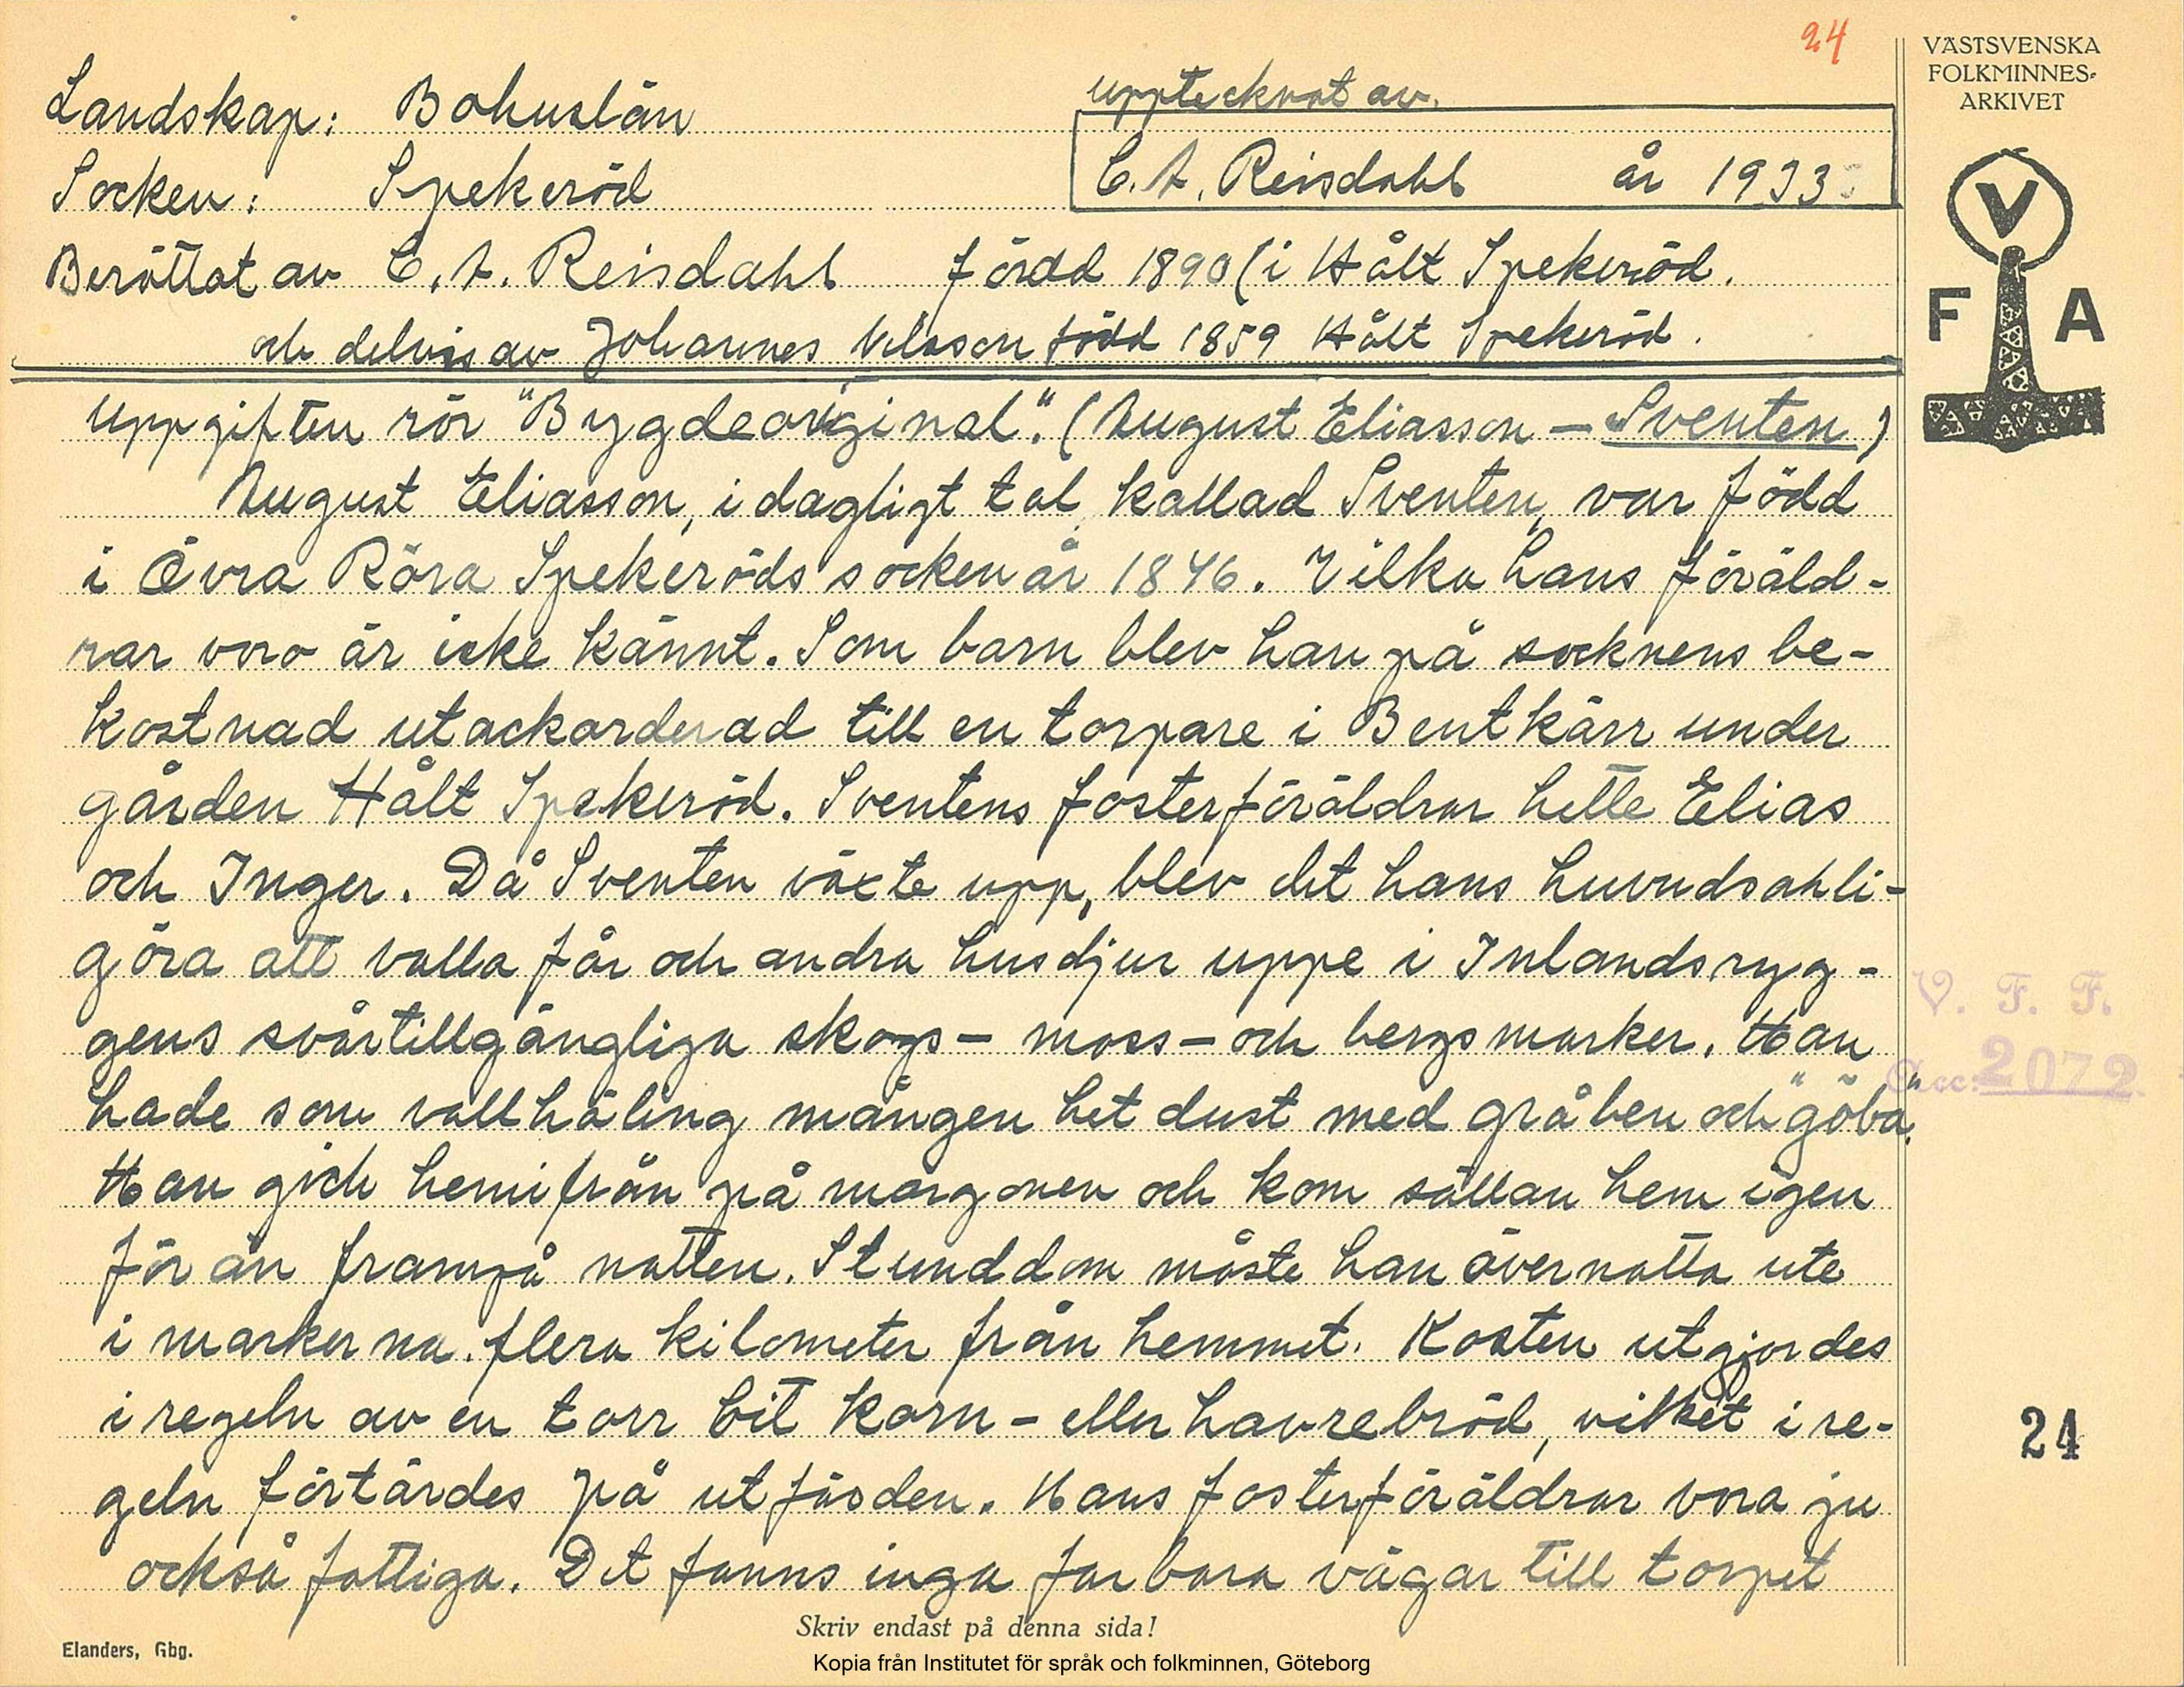 24
VÄSTSVENSKA
FOLKMINNES-
ARKIVET
V
F A
Landskap: Bohuslän
upptecknat av.
Socken: Spekeröd
C. A. Reisdahl år 1933.
Berättat av C. A. Reisdahl född 1890 (i Hålt Spekeröd.
och delvis av Johannes Nilsson född 1859 Hålt Spekeröd.
Uppgiften rör "Bygdeoriginal". (August Eliasson — "Sventen")
August Eliasson, i dagligt tal kallad Sventen, var född
i Övra Röra Spekeröds socken år 1846. Vilka hans föräld-
rar voro är icke kännt. Som barn blev han på socknens be-
kostnad utackorderad till en torpare i Bentkärr under
gården Hålt Spekeröd. Sventens fosterföräldrar hette Elias
och Inger. Då Sventen växte upp, blev det hans huvudsakli-
göra att valla får och andra husdjur uppe i Inlandsryg-
gens svårtillgängliga skogs- moss- och bergsmarker. Han
hade som vallhäling mången het dust med gråben och "göba".
Han gick hemifrån på morgonen och kom sällan hem igen
för än frampå natten. Stunddom måste han övernatta ute
i markerna flera kilometer från hemmet. Kosten utgjordes
i regeln av en torr bit korn- eller havrebröd, vilket i re-
geln förtärdes på utfärden. Hans fosterföräldrar vora ju
också fattiga. Det fanns inga farbara vägar till torpet
V. F. F.
Acc: 2072
24
Skriv endast på denna sida!
Elanders, Gbg.
Kopia från Institutet för språk och folkminnen, Göteborg